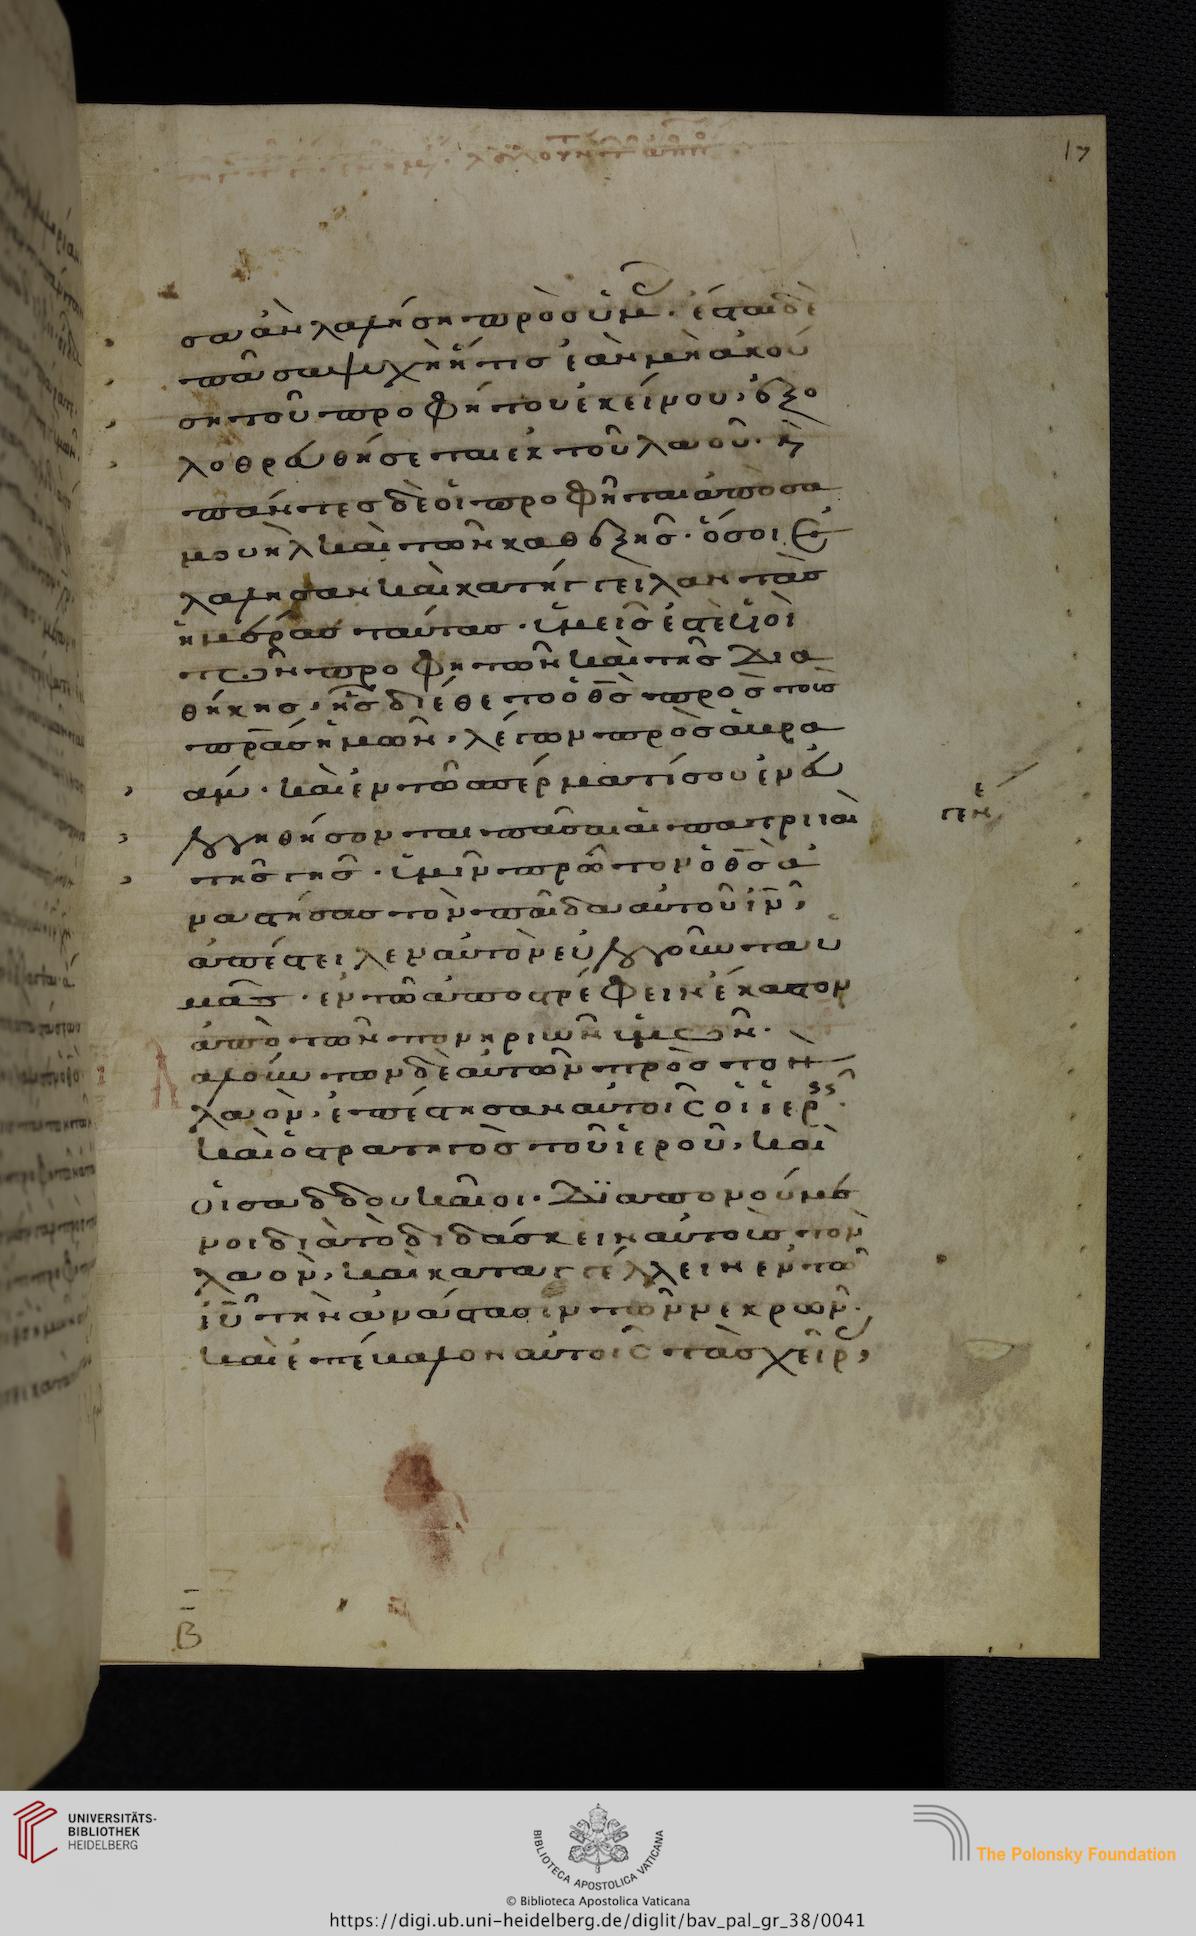 17
σα ἂν λαλήση πρὸς ὑμ. ἔσται δὲ
πᾶσα ψυχὴ ἥτις ἐὰν μὴ ἀκού
ση τοῦ προφήτου ἐκείνου, ἐξο
λοθρευθήσεται ἐκ τοῦ λαοῦ. κ
πάντες δὲ οἱ προφῆται ἀπὸ σα
μουὴλ καὶ τῶν καθεξῆς. ὅσοι ἐ
λάλησαν καὶ κατήγγειλαν τὰς
ἡμέρας ταύτας. ὑμεῖς ἐστὲ υἱοὶ
τῶν προφητῶν καὶ τῆς δια
θήκης, ἧς διέθετο ὁ θς πρὸς τοὺς
πρας ἡμῶν, λέγων πρὸς ἁβρα
άμ. καὶ ἐν τῶ σπέρματί σου ἐνευ
λογηθήσονται πᾶσαι αἱ πατριιαὶ
τῆς γῆς. ὑμῖν πρῶτον ὁ θς ἀ
ναστήσας τὸν παῖδα αὐτοῦ ιν,
ἀπέστειλεν αὐτὸν εὐλογοῦντα ὑ
μᾶς. ἐν τῶ ἀποστρέφειν ἕκαστον
ἀπὸ τῶν πονηριῶν ὑμῶν.
Λαλούντων δὲ αὐτῶν πρὸς τὸν
λαὸν, ἐπέστησαν αὐτοῖς οἱ ἱερ
καὶ ὁ στρατηγὸς τοῦ ἱεροῦ, καὶ
οἱ σαδδουκαῖοι. διαπονούμε
νοι διὰ τὸ διδάσκειν αὐτοὺς τὸν
λαὸν, καὶ καταγγέλλειν ἐν τῶ
ιυ τὴν ἀνάστασιν τῶν νεκρῶν.
καὶ ἐπέβαλον αὐτοῖς τὰς χεῖρ,
Β
UNIVERSITÄTS-
BIBLIOTHEK
HEIDELBERG
BIBLIOTECA APOSTOLICA VATICANA
© Biblioteca Apostolica Vaticana
The Polonsky Foundation
https://digi.ub.uni-heidelberg.de/diglit/bav_pal_gr_38/0041